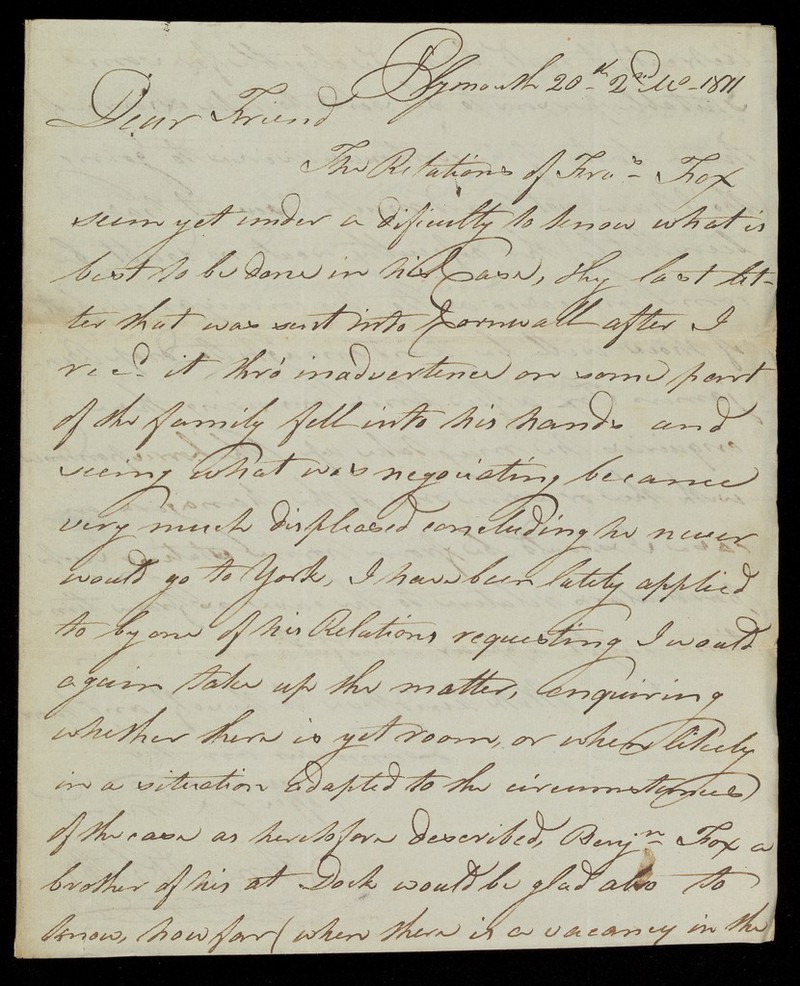 Plymouth 20th 2nd Mo - 1811
Dear Friend
The Relations of Fras Fox
seem yet under a dificulty to know what is
best to be done in his Case, thy last let-
ter that was sent into Cornwall after I
recd it thro' inadvertence on some part
of the family fell into his hands and
seeing what was negociating became
very much displeased concluding he never
would go to York, I have been lately applied
to by one of his Relations requesting I would
again take up the matter, enquiring
whether there is yet room, or when likely
in a situation adapted to the circumstances
of the case as heretofore described, Benjn Fox a
brother of his at Dock would be glad also to
know, how far (when there is a vacancy in the